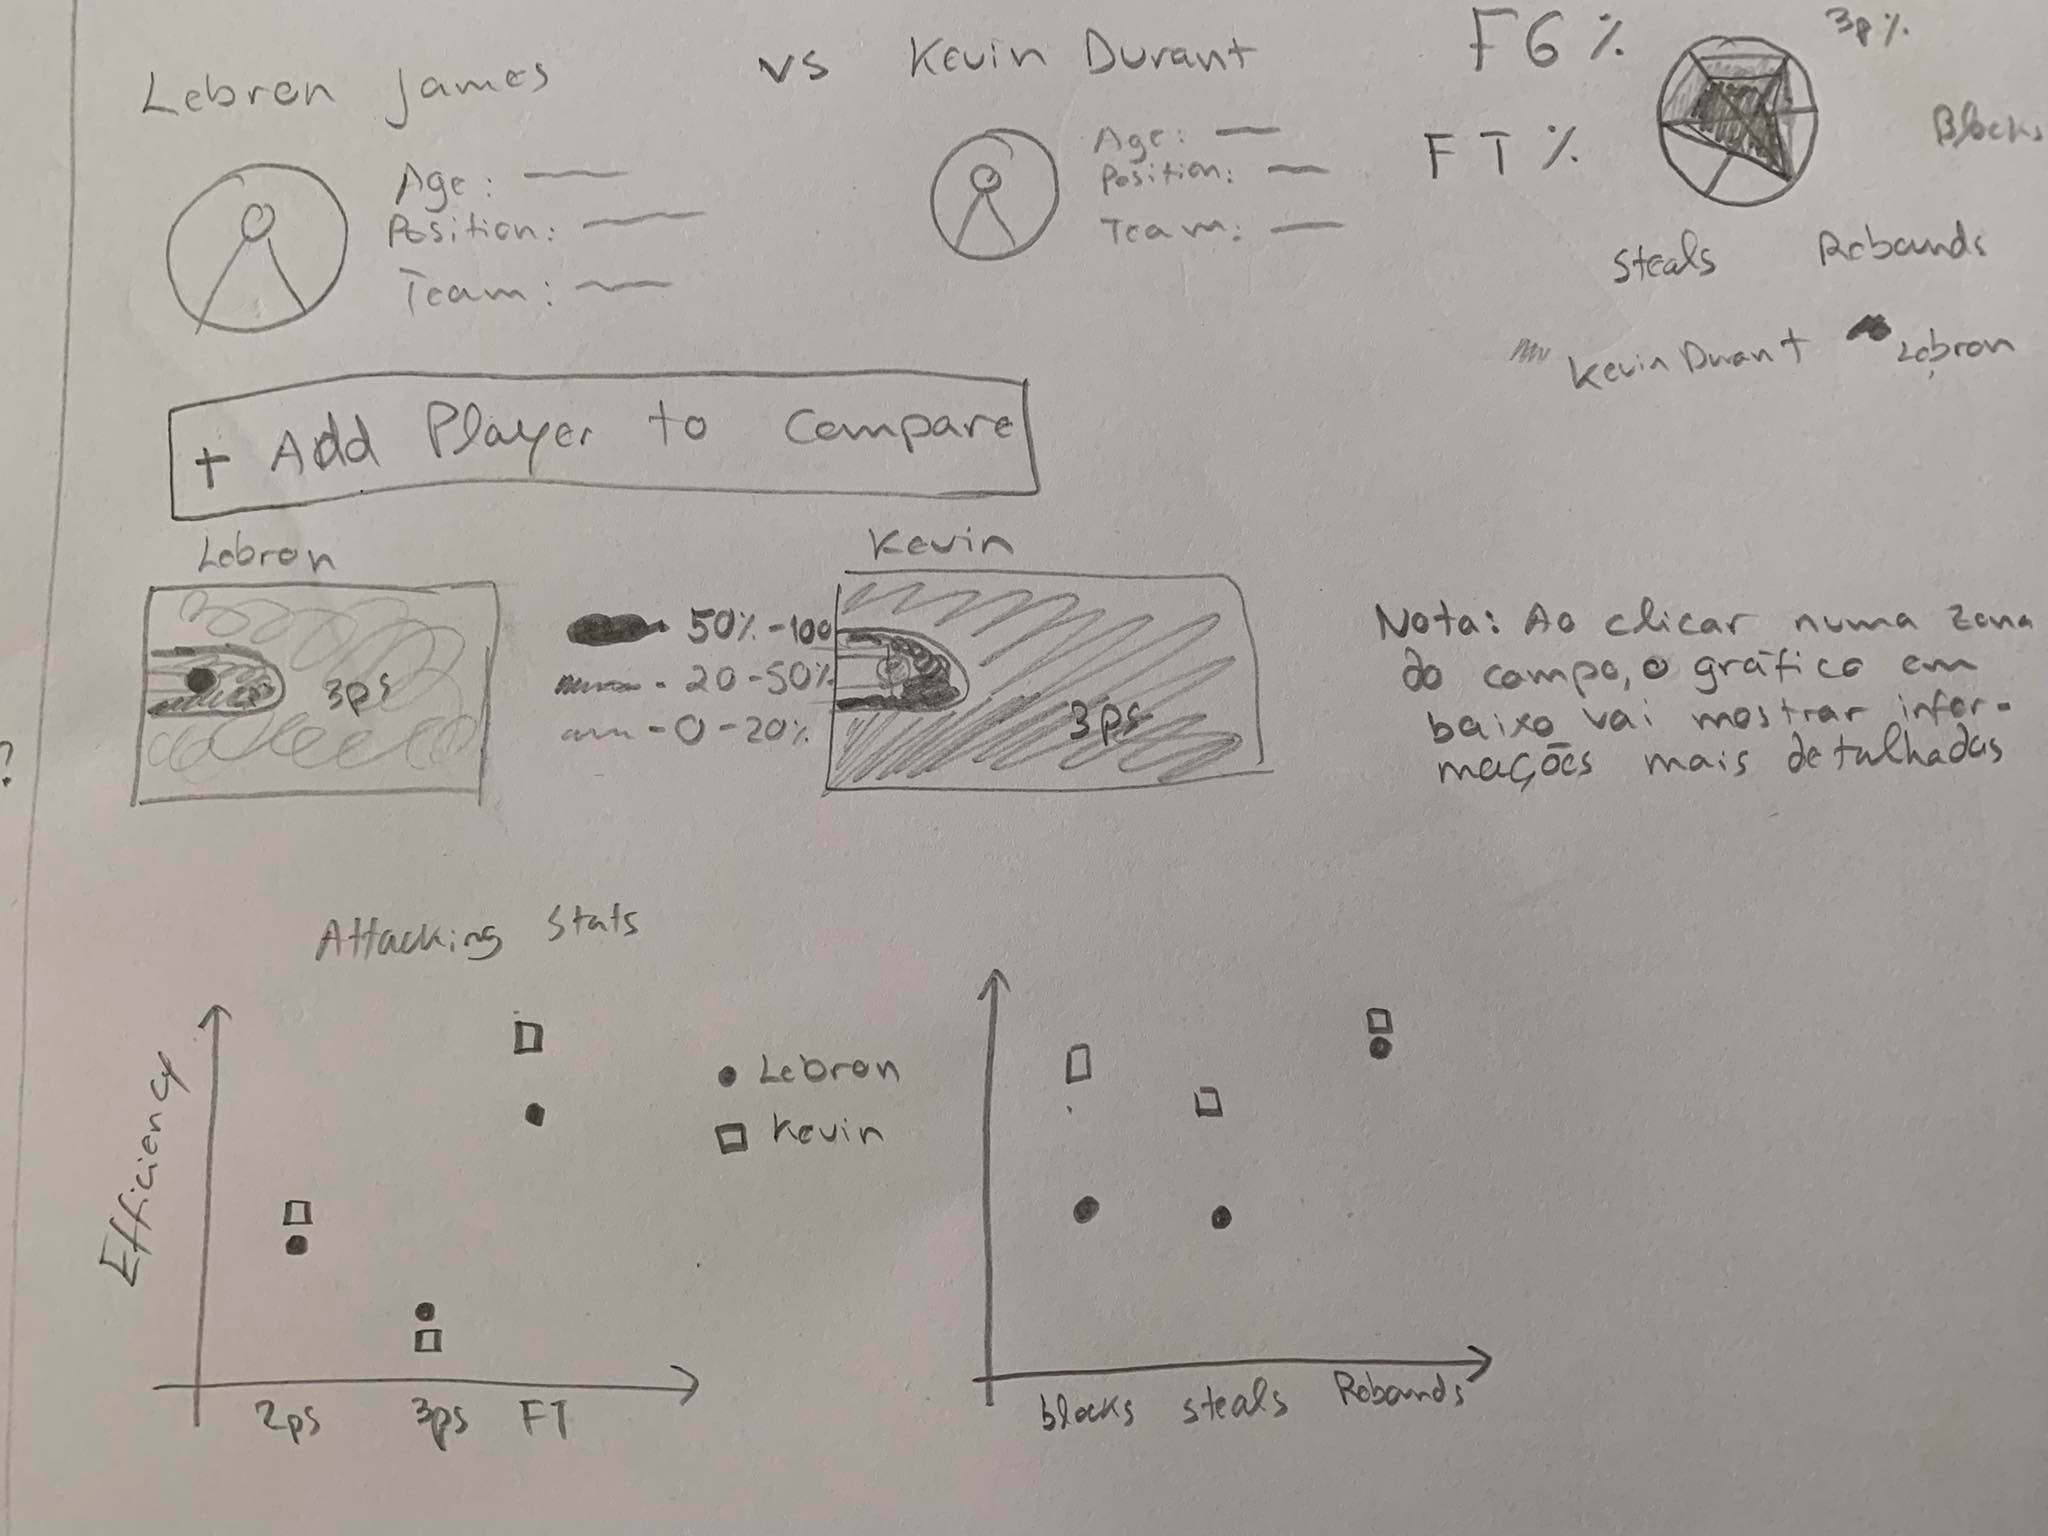 Lebron James vs Kevin Durant
Age:
Position:
Team:
Age:
Position:
Team:
FG %
3p %
FT %
Blocks
Steals
Rebounds
Kevin Durant
Lebron
+ Add Player to Compare
Lebron
Kevin
3ps
50% - 100
- 20 - 50%
- 0 - 20%
3ps
Nota: Ao clicar numa zona
do campo, o gráfico em
baixo vai mostrar infor-
mações mais detalhadas
?
Attacking Stats
Efficiency
Lebron
Kevin
2ps 3ps FT
blocks steals Rebounds